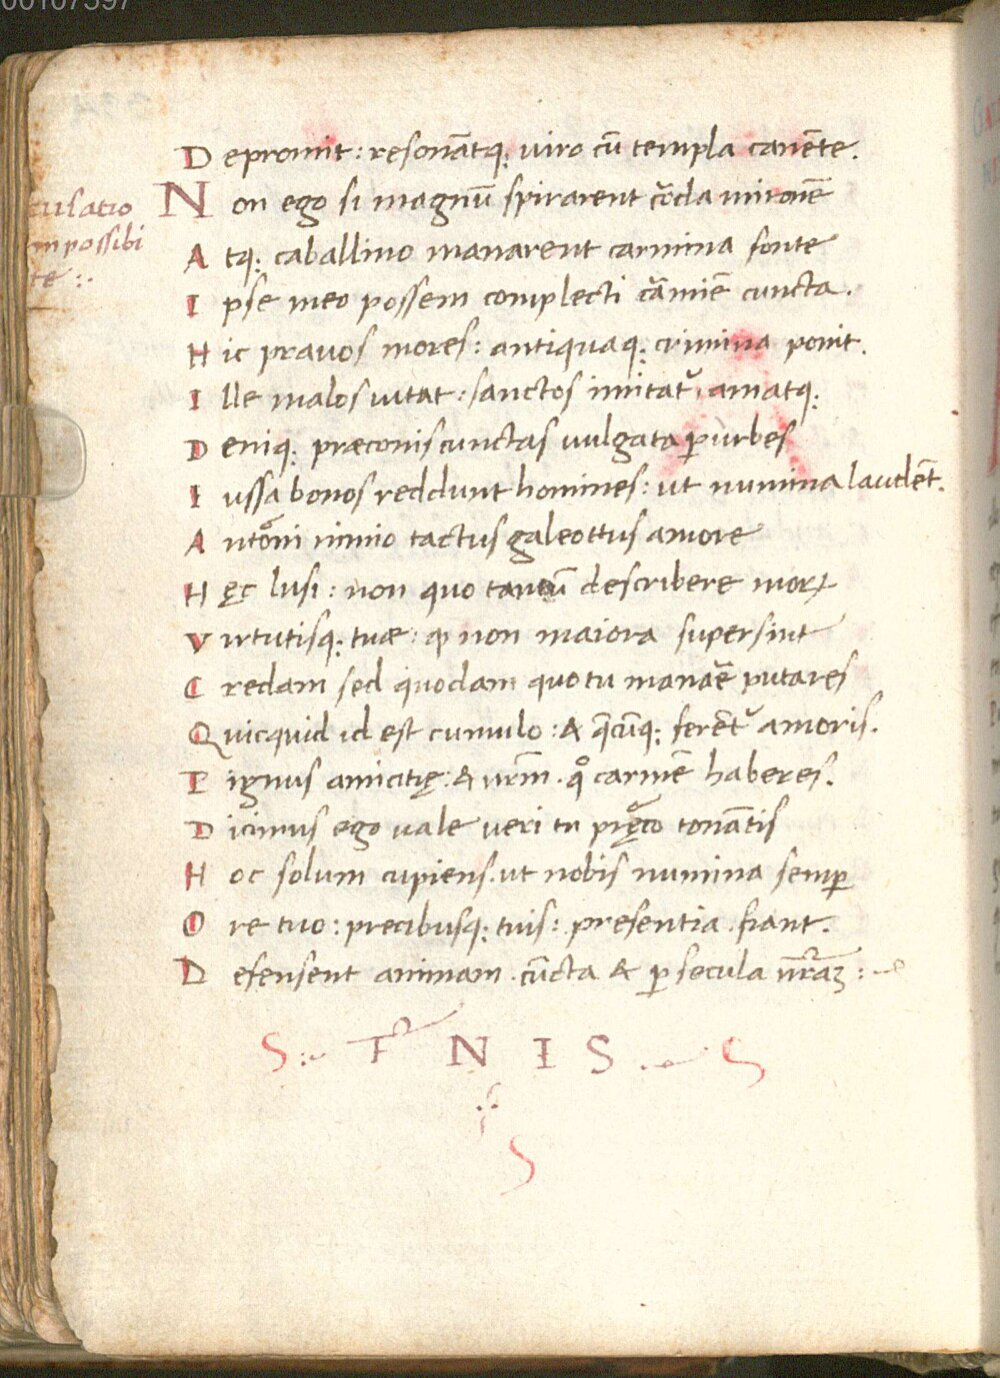 00107397
Depromit: resonãtq; uiro cũ templa canẽte.
Non ego si magnũ spirarent cõcla mironẽ
Atq; caballino manarent carmina fonte
Ipse meo possem complecti cãmiẽ cuncta.
Hic prauos mores: antiquaq; crimina ponit.
Ille malos uitat: sanctos imitat᷒ amatq;
Deniq; præconis cunctas uulgata ꝑ urbes
Iussa bonos reddunt homines: ut numina laudẽt.
Antõni nimio tactus galeottus amore
Hęc lusi: non quo tantũ describere moꝝ
Virtutisq; tuæ: ꝙ non maiora supersint
Credam sed quodam quo tu manãẽ putares
Quicquid id est cumulo: & q̃cũq; ferẽt᷒ amoris.
Pignus amicitię: & nr̃m. qͦ carmẽ haberes.
Dicimus ego uale ueri tu pręco tonãtis
Hoc solum cupiens. ut nobis numina semꝑ
Ore tuo: precibusq; tuis: presentia fiant.
Defensent animam. cũcta & ꝑ secula nr̃aꝫ:~
cusatio
mpossibi
te:.
S:~ F N I S .~ S
S